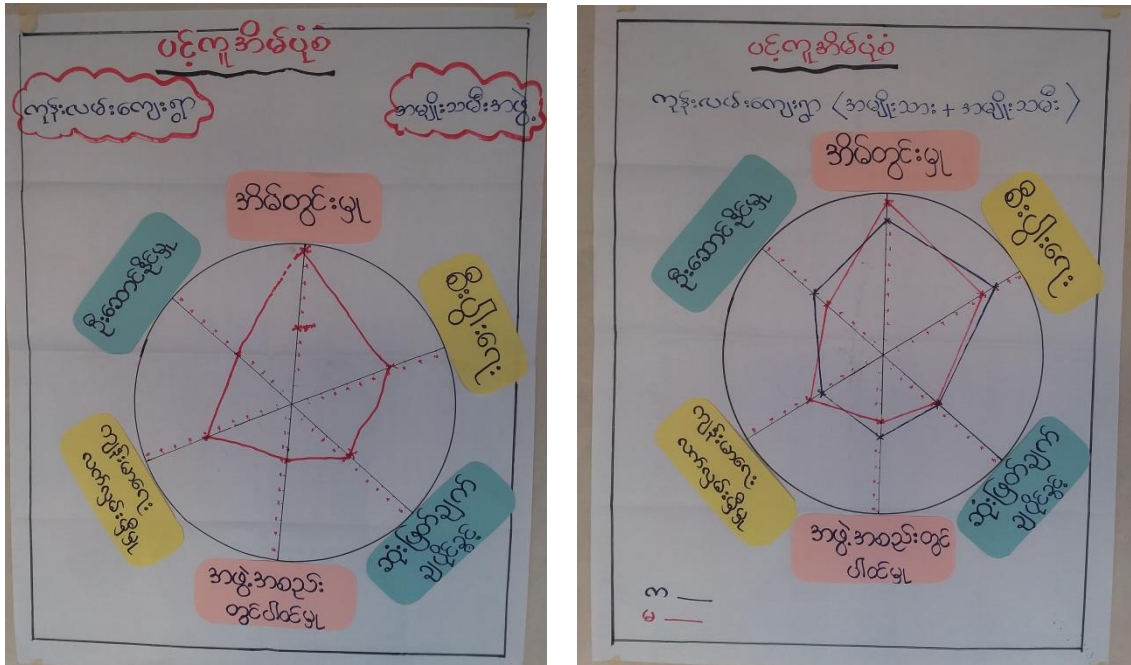 ပင့်ကူအိမ်ပုံစံ
ကုန်းလမ်းကျေးရွာ
အမျိုးသမီးအဖွဲ့
အိမ်တွင်းမှု
စီးပွါးရေး
ဆုံးဖြတ်ချက်
ချပိုင်ခွင့်
အဖွဲ့အစည်း
တွင်ပါဝင်မှု
ကျန်းမာရေး
လက်လှမ်းမှီမှု
ဦးဆောင်နိုင်မှု
ပင့်ကူအိမ်ပုံစံ
ကုန်းလမ်းကျေးရွာ (အမျိုးသား + အမျိုးသမီး)
အိမ်တွင်းမှု
စီးပွါးရေး
ဆုံးဖြတ်ချက်
ချပိုင်ခွင့်
အဖွဲ့အစည်းတွင်
ပါဝင်မှု
ကျန်းမာရေး
လက်လှမ်းမှီမှု
ဦးဆောင်နိုင်မှု
က
မ